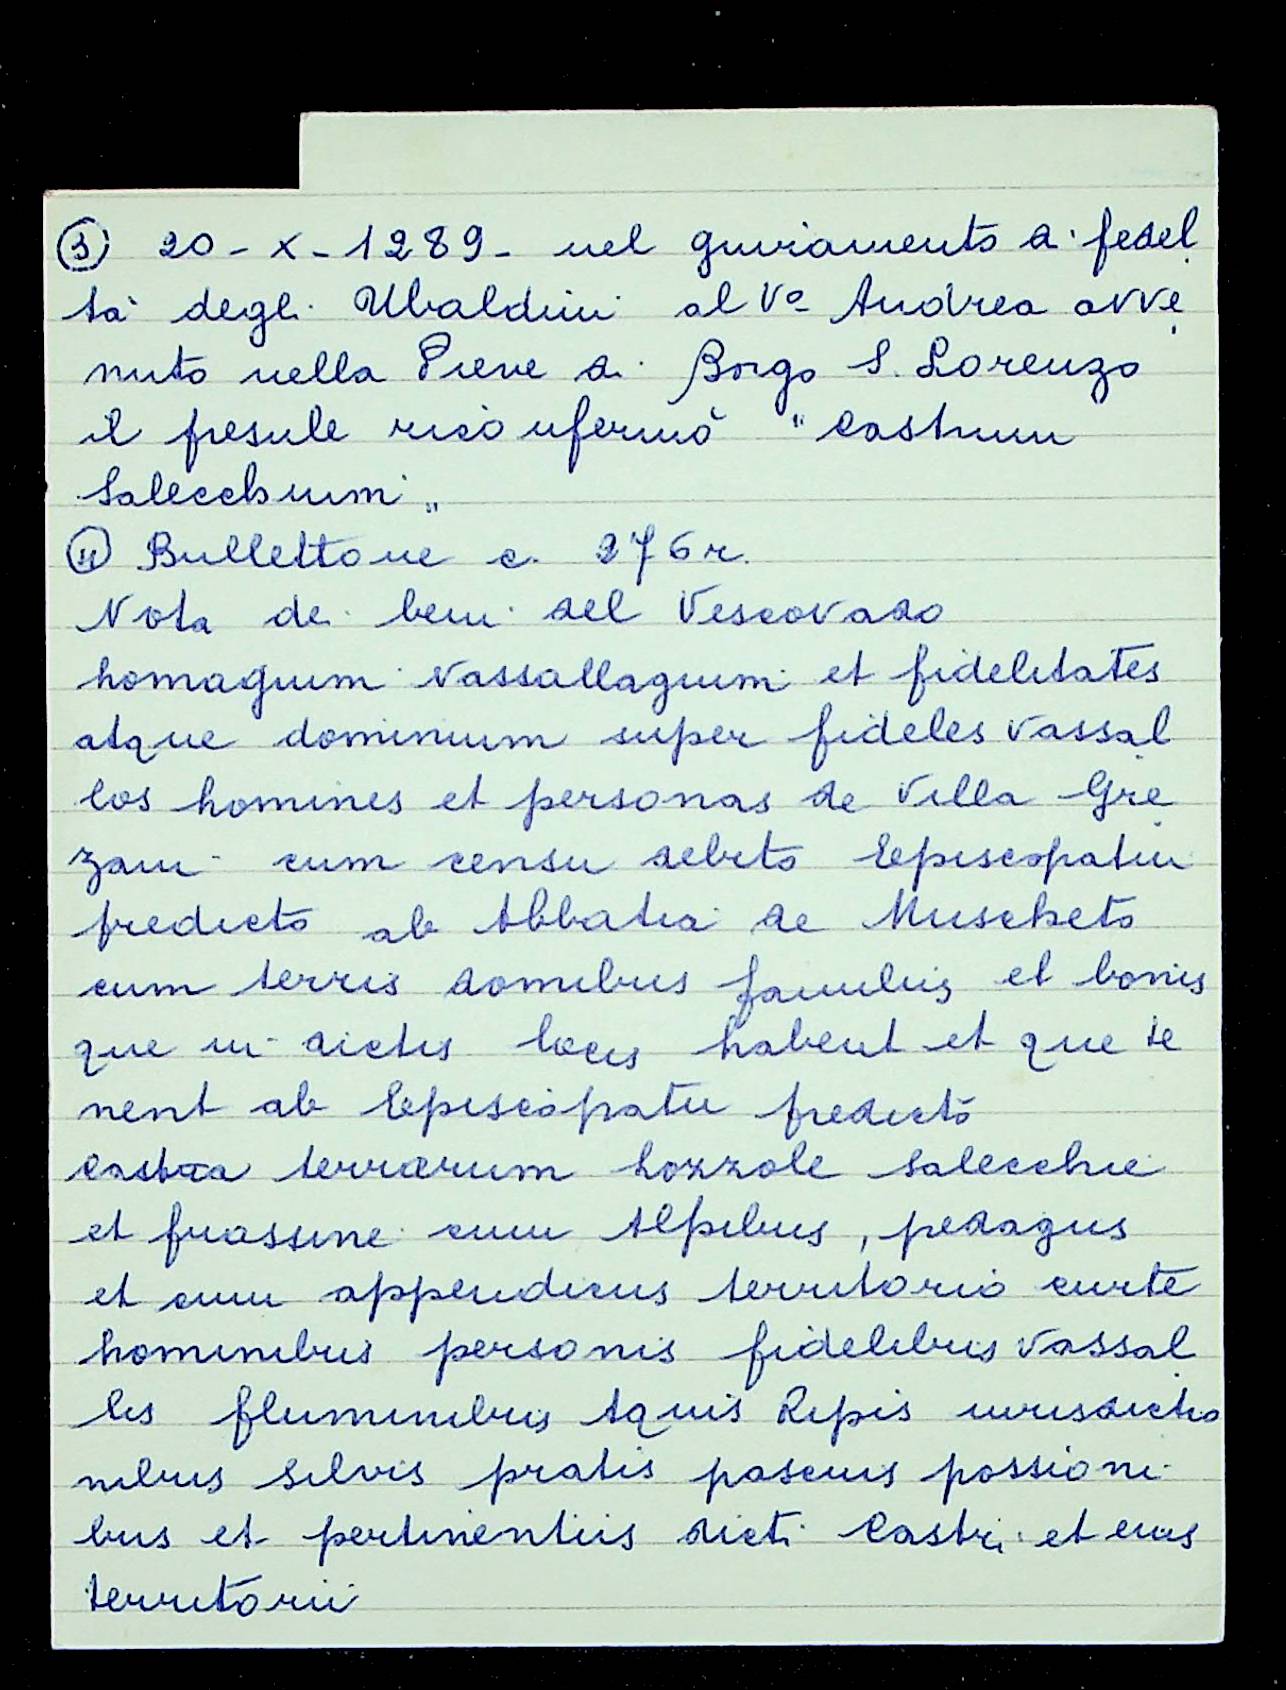 ③ 20 - X - 1289 - nel giuramento di fedel
tà degli Ubaldini al Vo Andrea avve
nuto nella Pieve di Borgo S. Lorenzo
il presule riconfermò "castrum
Salecchium"
④ Bullettone c. 276 r.
Nota dei beni del Vescovado
homagium vassallagium et fidelitates
atque dominium super fideles vassal
los homines et personas de Villa Gre
zani cum censu debito Episcopatui
predicto ab Abbatia de Muscheto
cum terris domibus familiis et bonis
que in dictis locis habent et que te
nent ab Episcopatu predicto
Castra terrarum Lozzole Salecchie
et frassine cum Alpibus, pedagiis
et cum appendiciis territorio curte
hominibus personis fidelibus vassal
lis fluminibus Aquis Ripis iurisdictio
nibus Silvis pratis pascuis possioni
bus et pertinentiis dicti Castri et eius
territorii